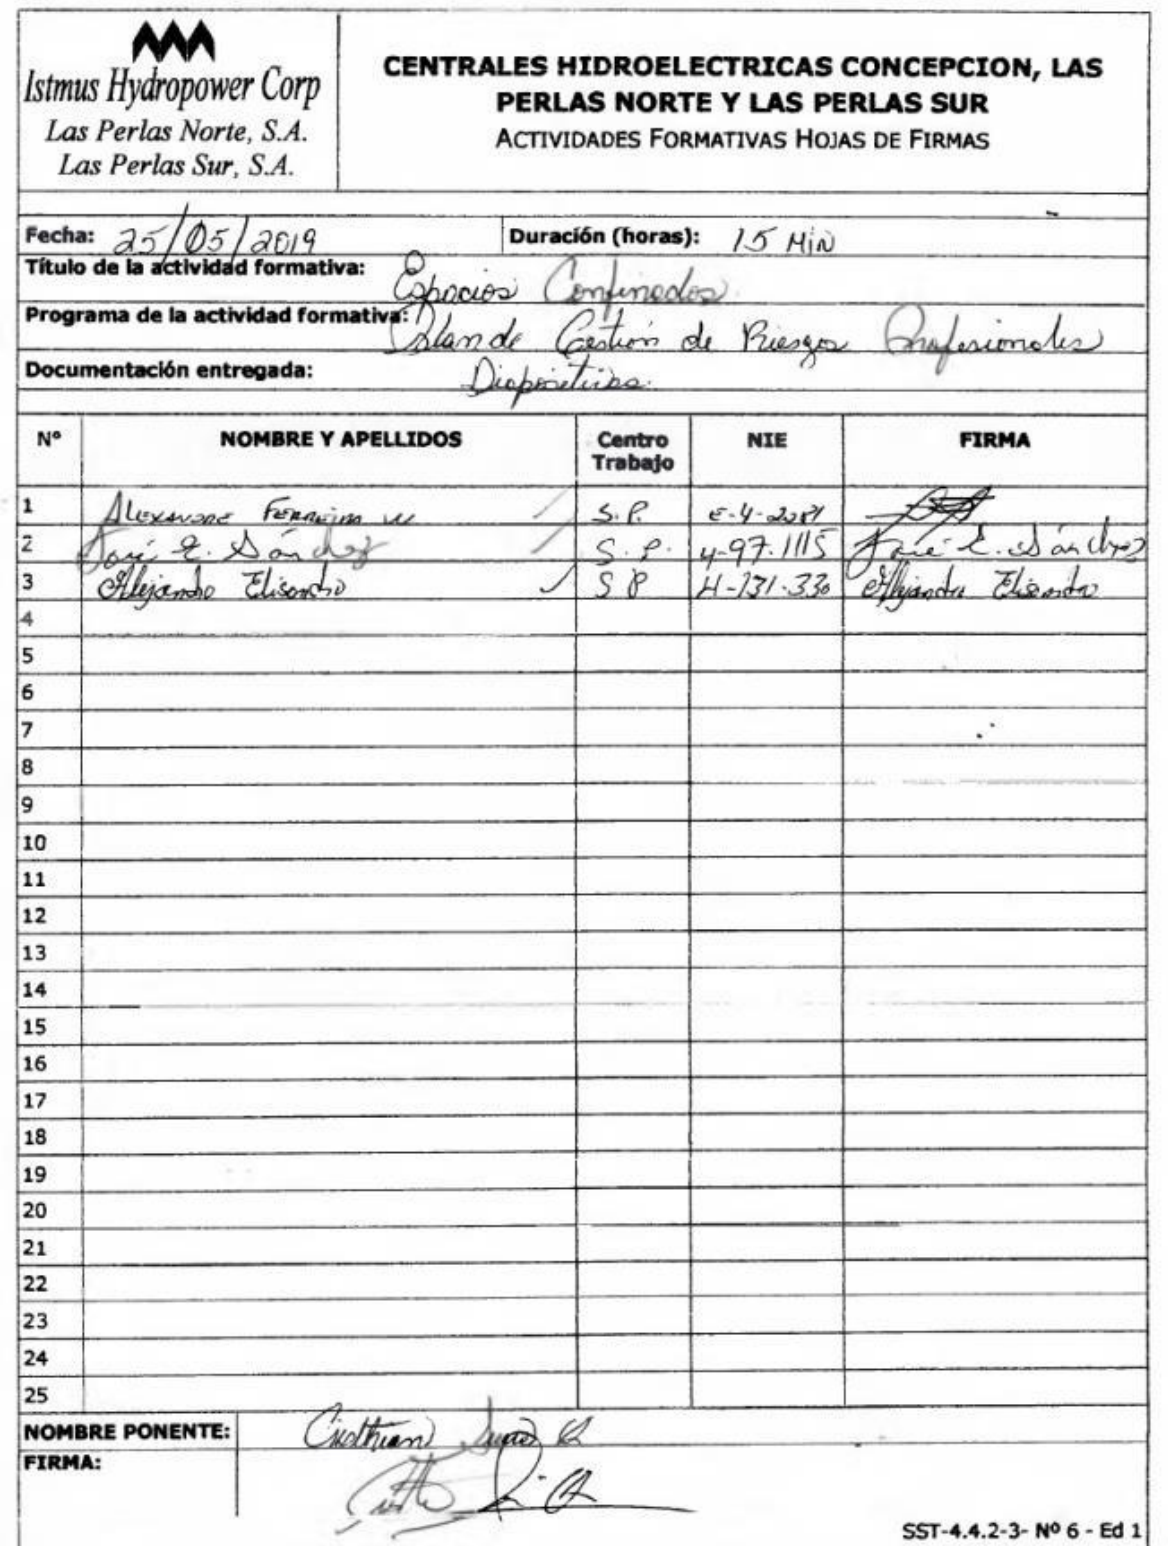 Istmus Hydropower Corp
Las Perlas Norte, S.A.
Las Perlas Sur, S.A.
CENTRALES HIDROELECTRICAS CONCEPCION, LAS
PERLAS NORTE Y LAS PERLAS SUR
ACTIVIDADES FORMATIVAS HOJAS DE FIRMAS
Fecha: 25/05/2019 Duración (horas): 15 MiN
Título de la actividad formativa: Espacios Confinados
Programa de la actividad formativa: Plan de Gestión de Riesgos Profesionales
Documentación entregada: Diapositivas.
Nº NOMBRE Y APELLIDOS Centro Trabajo NIE FIRMA
1 ALEXANDRE FERREIRA S.P. E-4-2081
2 José E. Sánchez S.P. 4-97-1115 José E. Sánchez
3 Alejandro Elisondro S P 4-131-330 Alejandro Elisondro
4
5
6
7
8
9
10
11
12
13
14
15
16
17
18
19
20
21
22
23
24
25
NOMBRE PONENTE: Cristhian
FIRMA:
SST-4.4.2-3- Nº 6 - Ed 1